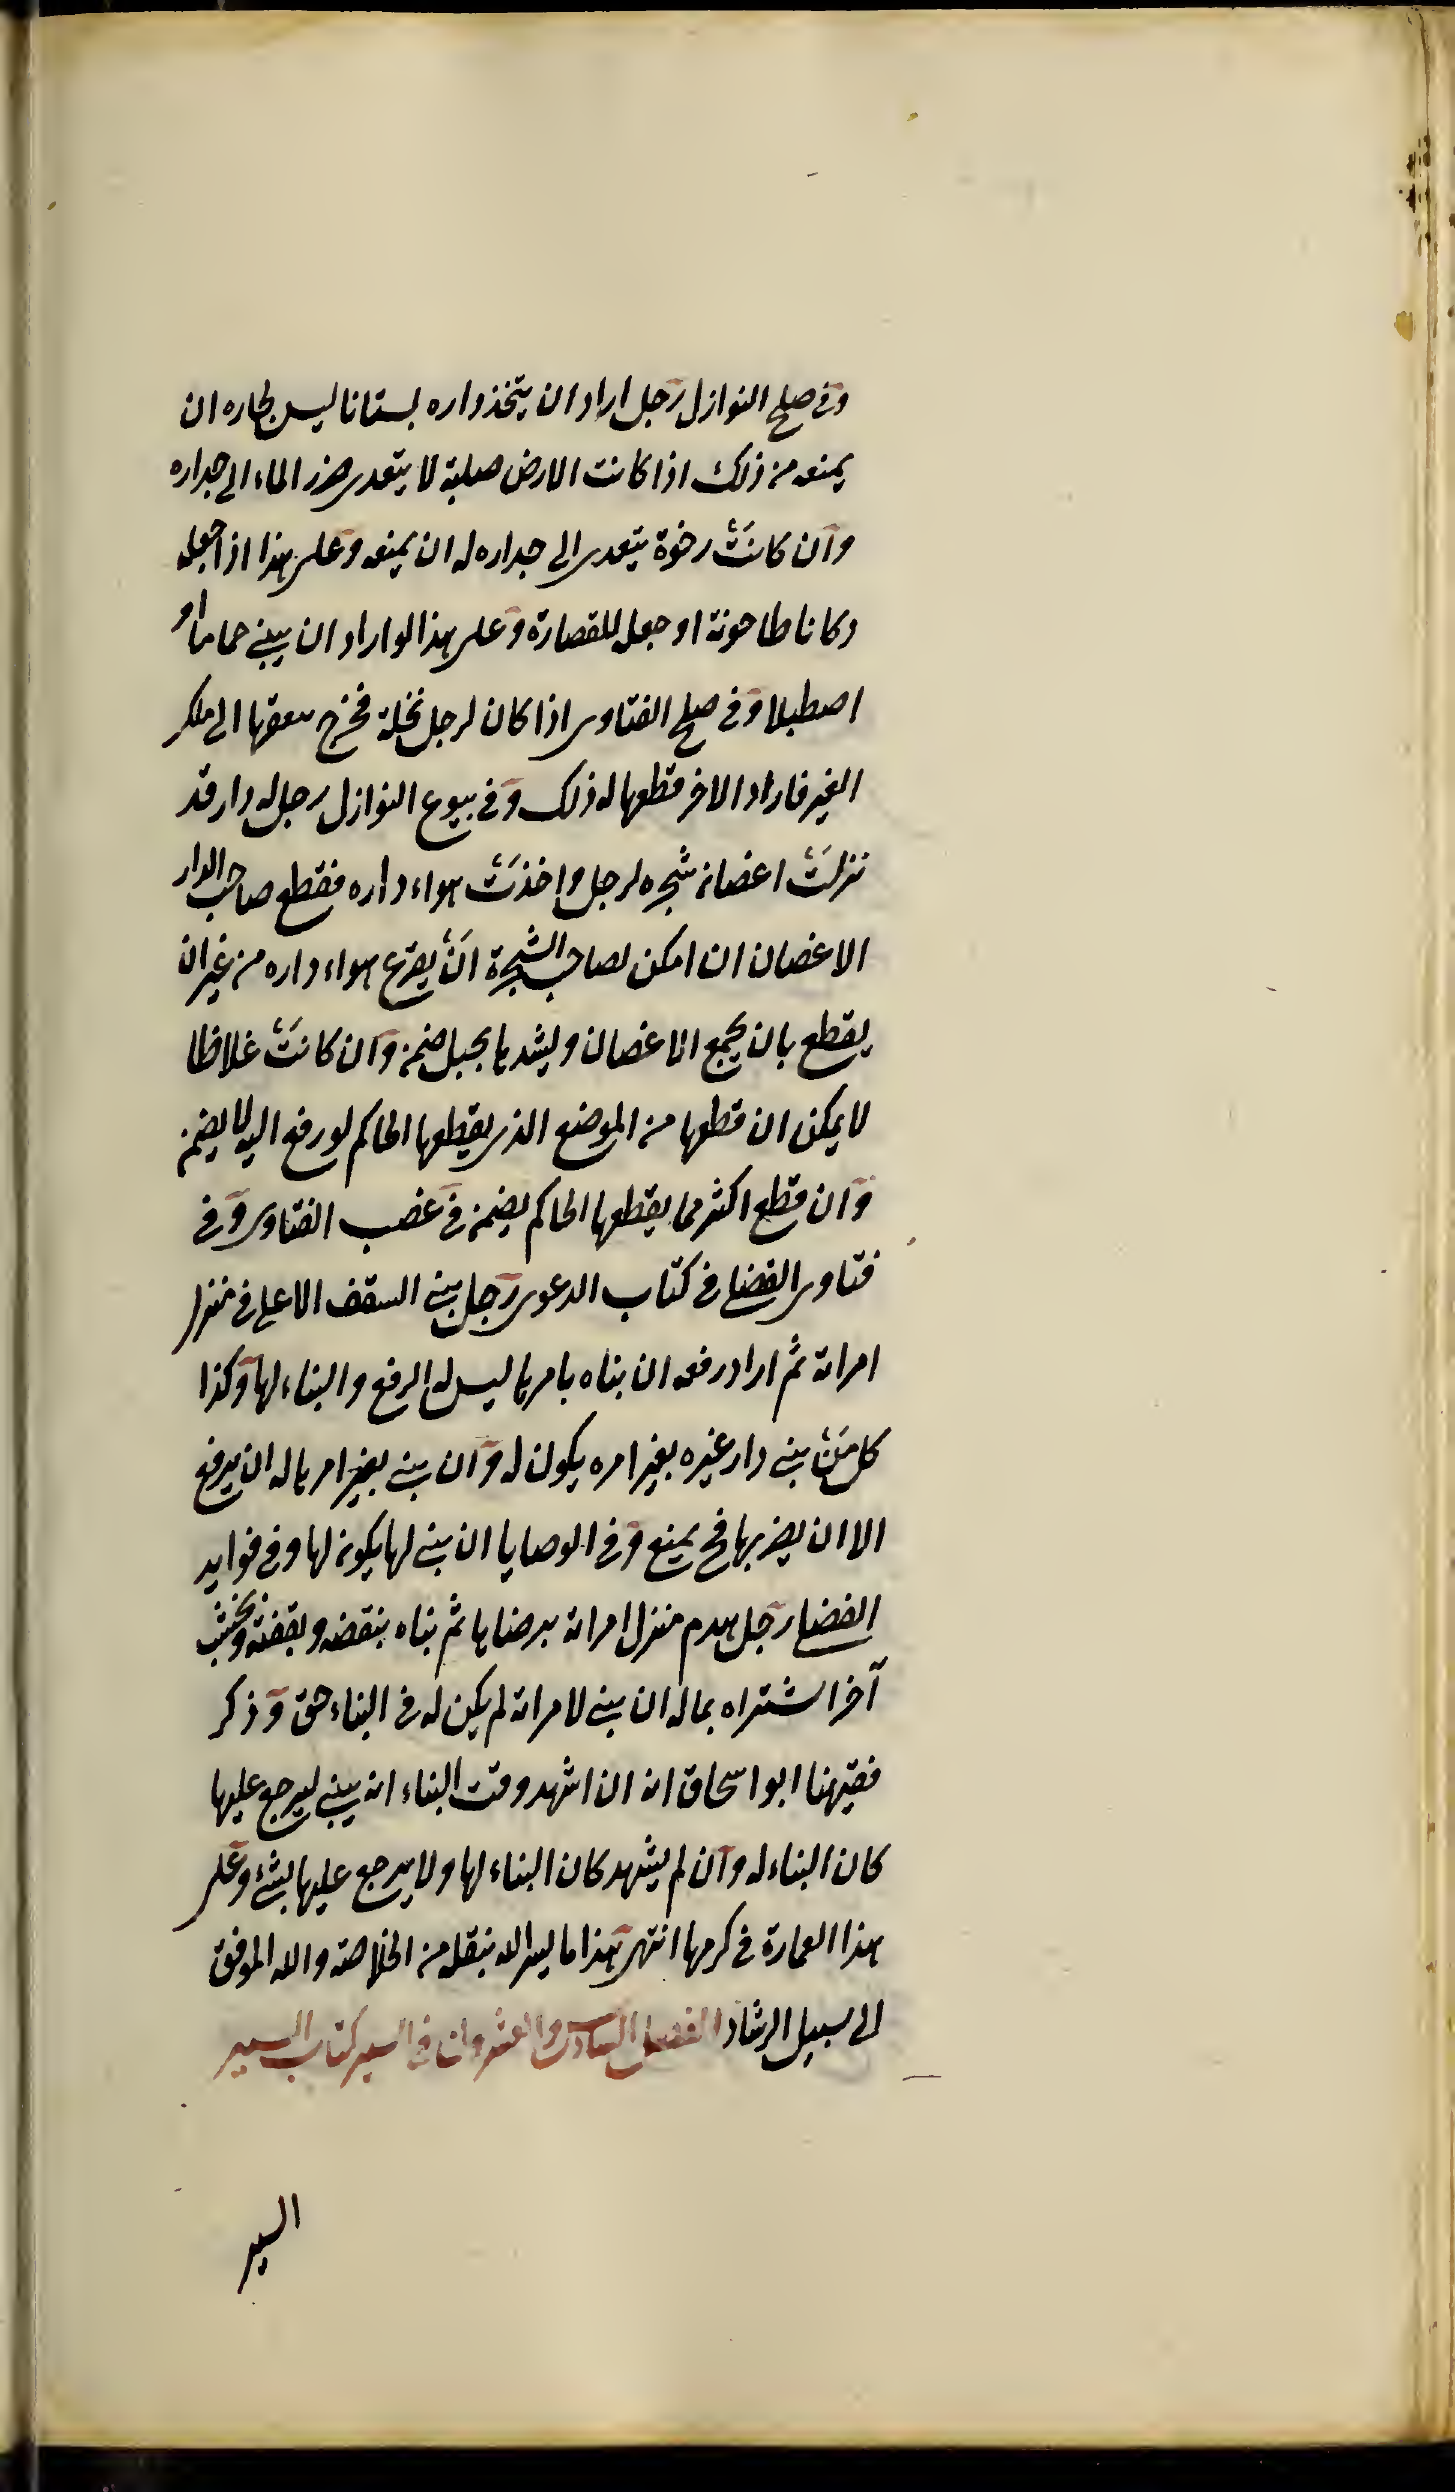 وفى صلح النوازل رجل اراد ان يتخذ داره بستانا ليس لجاره ان
يمنعه من ذلك اذا كانت الارض صلبة لا يتعدى ضرر الماء الى جداره
وان كانت رخوة يتعدى الى جداره له ان يمنعه وعلى هذا اذا جعل
دكانا طاحونة او جعل للقصارة وعلى هذا لو اراد ان يبنى حماما او
اصطبلا وفى صلح الفتاوى اذا كان لرجل نخلة فخرج سعفها الى ملك
الغير فاراد الاخر قطعها له ذلك وفى بيوع النوازل رجل له دار قد
نزلت اغصان شجره لرجل واخذت هواء داره فقطع صاحب الدار
الاغصان ان امكن لصاحب الشجرة ان يفرغ هواء داره من غير ان
يقطع بان يجمع الاغصان ويشدها بحبل ضمن وان كانت غلاظا
لا يمكن ان قطعها من الموضع الذى يقطعها الحاكم لو رفع اليه لا يضمن
وان قطع اكثر مما يقطعها الحاكم يضمن فى غصب الفتاوى وفى
فتاوى الفضلى فى كتاب الدعوى رجل بنى السقف الاعلى فى منزل
امراته ثم اراد رفعه ان بناه بامرها ليس له الرفع والبناء لها وكذا
كل من بنى دار غيره بغير امره يكون له وان بنى بغير امرها له ان يرفع
الا ان يضر بها فح يمنع وفى الوصايا ان بنى لها يكون لها وفى فوايد
الفضلى رجل هدم منزل امراته برضاها ثم بناه بنقضه وبقضه وخشب
آخر اشتراه بماله ان بنى لامراته لم يكن له فى البناء حق وذكر
فقيهنا ابو اسحاق انه ان اشهد وقت البناء انه يبنى ليرجع عليها
كان البناء له وان لم يشهد كان البناء لها ولا يرجع عليها بشئ وعلى
هذا العمارة فى كرمها انتهى هذا ما يسر الله بنقله من الخلاصة والله الموفق
الى سبيل الرشاد الفصل السادس والعشرون فى السير كتاب السير
السير